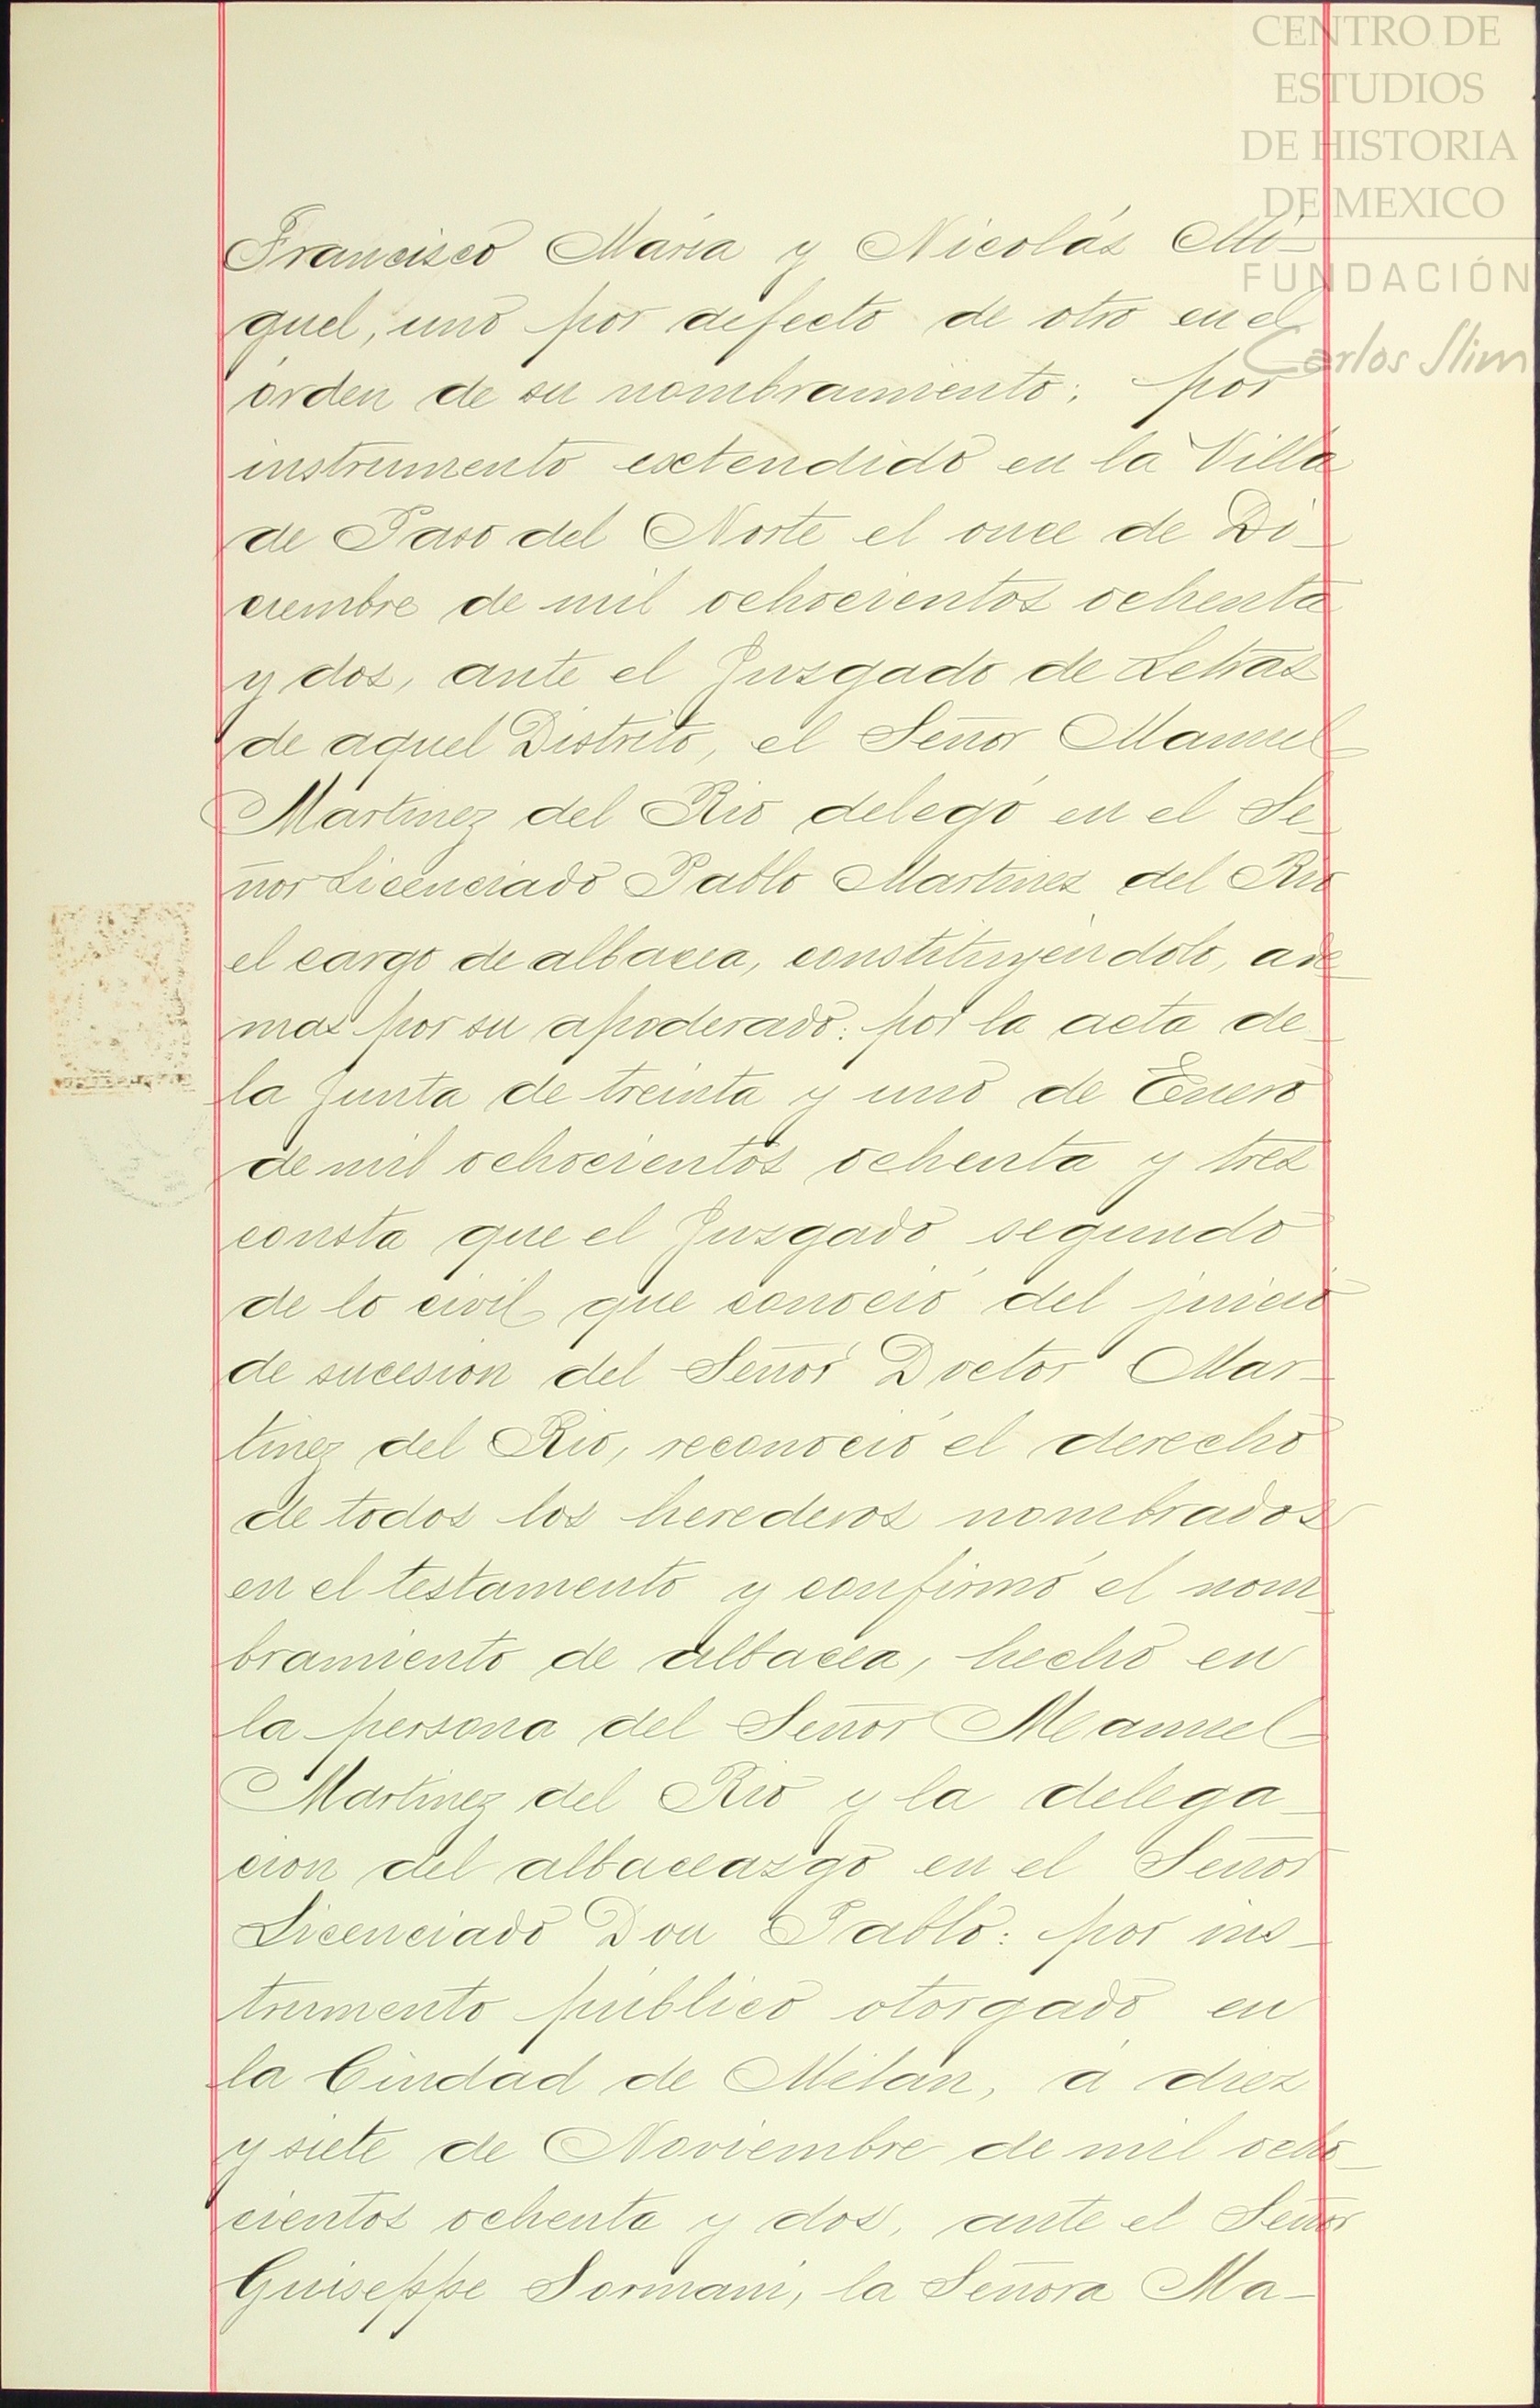 CENTRO DE
ESTUDIOS
DE HISTORIA
DE MEXICO
FUNDACIÓN
Carlos Slim
Francisco María y Nicolás Mi-
guel, uno por defecto de otro en el
órden de su nombramiento; por
instrumento extendido en la Villa
de Paso del Norte el once de Di-
ciembre de mil ochocientos ochenta
y dos, ante el Juzgado de Letras
de aquel Distrito, el Señor Manuel
Martinez del Rio delegó en el Se-
ñor Licenciado Pablo Martinez del Rio
el cargo de albacea, constituyéndolo, ade-
mas por su apoderado: por la acta de
la junta de treinta y uno de Enero
de mil ochocientos ochenta y tres
consta que el Juzgado segundo
de lo civil que conoció del juicio
de sucesion del Señor Doctor Mar-
tinez del Rio, reconoció el derecho
de todos los herederos nombrados
en el testamento y confirmó el nom-
bramiento de albacea, hecho en
la persona del Señor Manuel
Martinez del Rio y la delega-
cion del albaceazgo en el Señor
Licenciado Don Pablo: por ins-
trumento público otorgado en
la Ciudad de Milán, á diez
y siete de Noviembre de mil ocho-
cientos ochenta y dos, ante el Señor
Guiseppe Sormani, la Señora Ma-